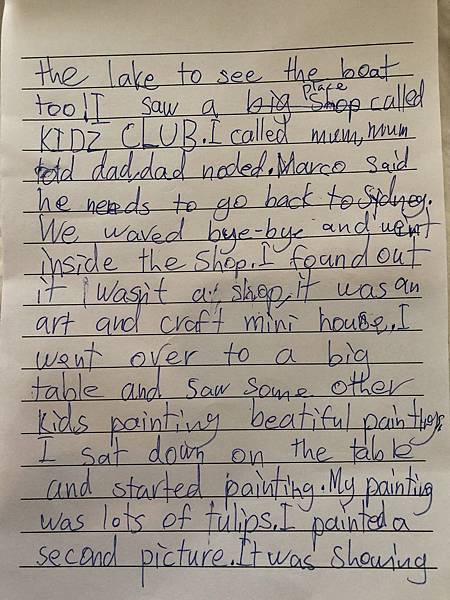 the lake to see the boat
too! I saw a big shop place called
KIDZ CLUB. I called mum, mum
told dad, dad noded. Marco said
he needs to go back to Sydney.
We waved bye-bye and went
inside the shop. I found out
it wasn't a shop, it was an
art and craft mini house. I
went over to a big
table and saw some other
kids painting beatiful paintings
I sat down on the table
and started painting. My painting
was lots of tulips. I painted a
second picture. It was showing